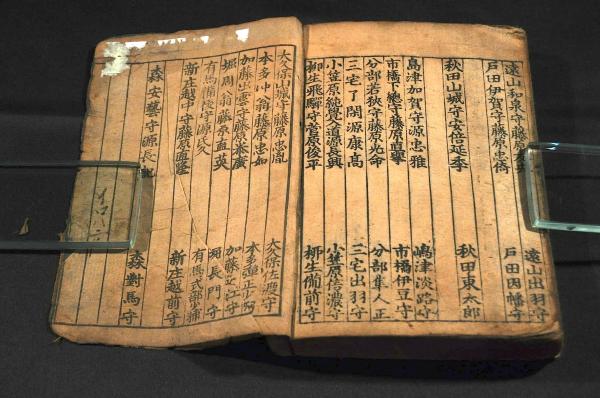 遠山和泉守藤原友 遠山出羽守
戸田伊賀守藤原忠 戸田因幡守
秋田山城守安倍延季 秋田東太郎
島津加賀守源忠雅 嶋津淡路守
市橋下總守藤原直擧 市橋伊豆守
分部若狭守藤原光命 分部隼人正
三宅了閑源康高 三宅出羽守
小笠原純覺源長興 小笠原信濃守
柳生飛驒守菅原俊平 柳生備前守
大久保山城守藤原忠胤 大久保佐渡守
本多忡翁藤原忠如 本多彈正少弼
加藤出雲守藤原泰廣 加藤近江守
堀周翁藤原直英 堀長門守
有馬備後守源氏久 有馬式部少輔
新庄越中守藤原直 新庄越前守
森安藝守源長記 森對馬守